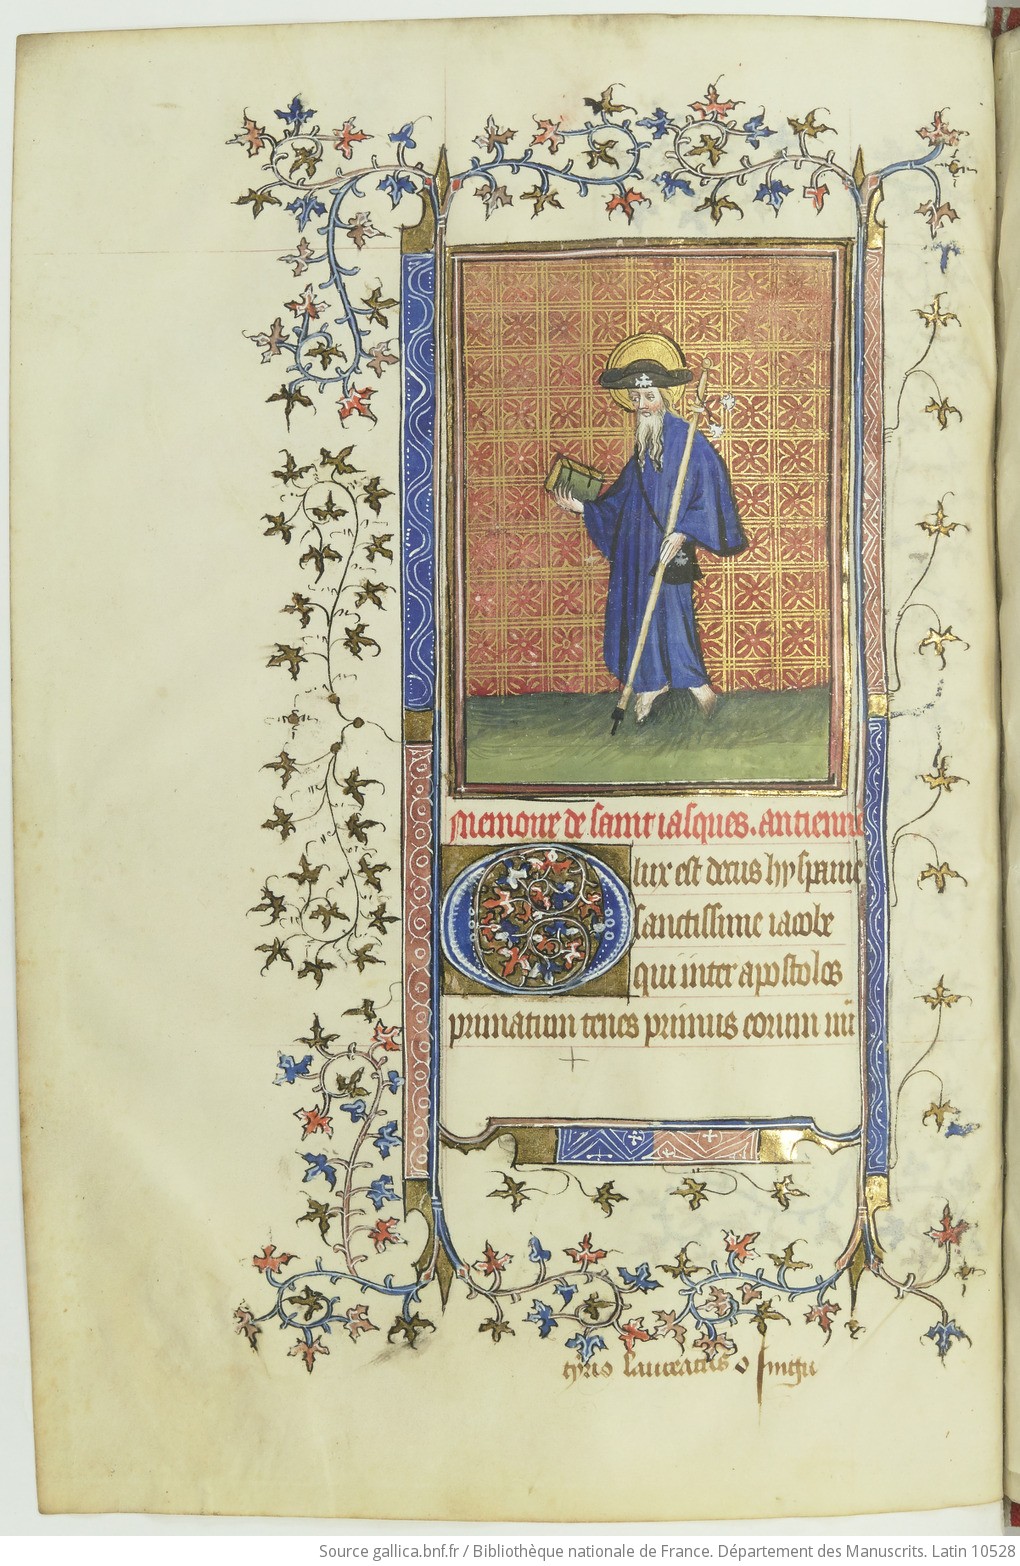 Memoire de saint iasques. antienne
O lux est decus hyspanie
sanctissime iacobe
qui inter apostoles
primatum tenes primus eorum mr̄
tyrio laureatus o singu
Source gallica.bnf.fr / Bibliothèque nationale de France. Département des Manuscrits. Latin 10528